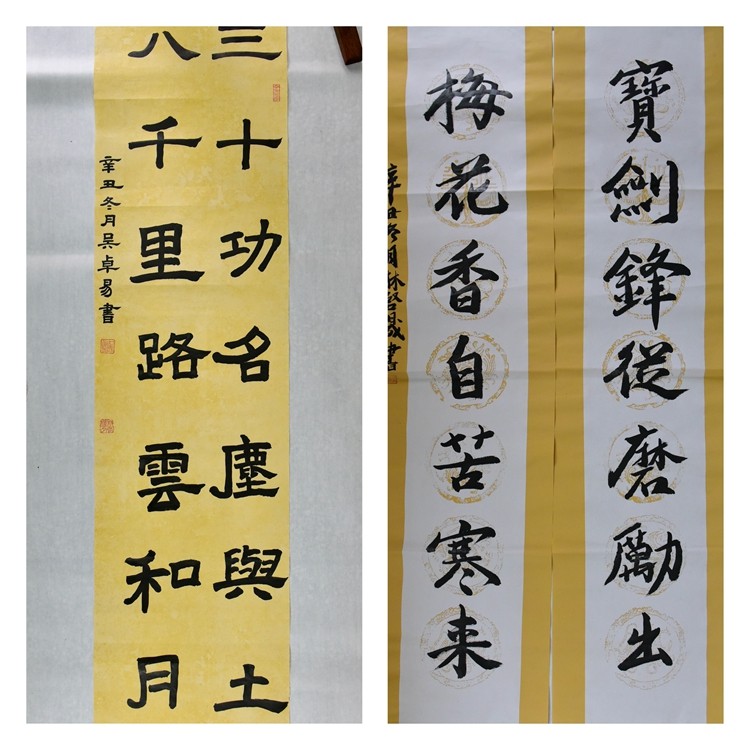 三十功名塵與土
八千里路雲和月
辛丑冬月吳卓易書
寶劍鋒從磨勵出
梅花香自苦寒来
辛丑冬月林
書